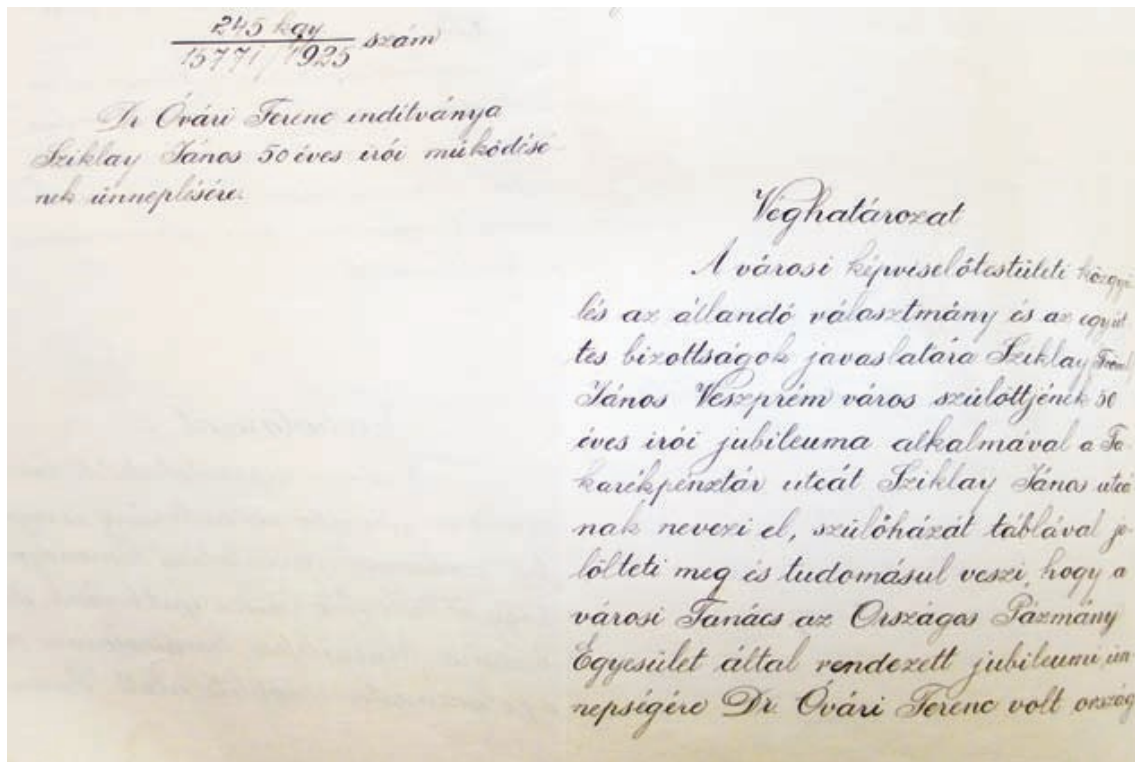 245 kgy
15771/1925 szám
Dr Óvári Ferenc indítványa
Sziklay János 50 éves irói működésé-
nek ünneplésére.
Véghatározat
A városi képviselőtestületi közgyü-
lés az állandó választmány és az együt-
tes bizottságok javaslatára Sziklay
János Veszprém város szülöttjének 50
éves irói jubileuma alkalmával a Ta-
karékpénztár utcát Sziklay János utcá
nak nevezi el, szülőházát táblával je-
lölteti meg és tudomásul veszi, hogy a
városi Tanács az Országos Pázmány
Egyesület által rendezett jubileumi ün-
nepségére Dr. Óvári Ferenc volt ország